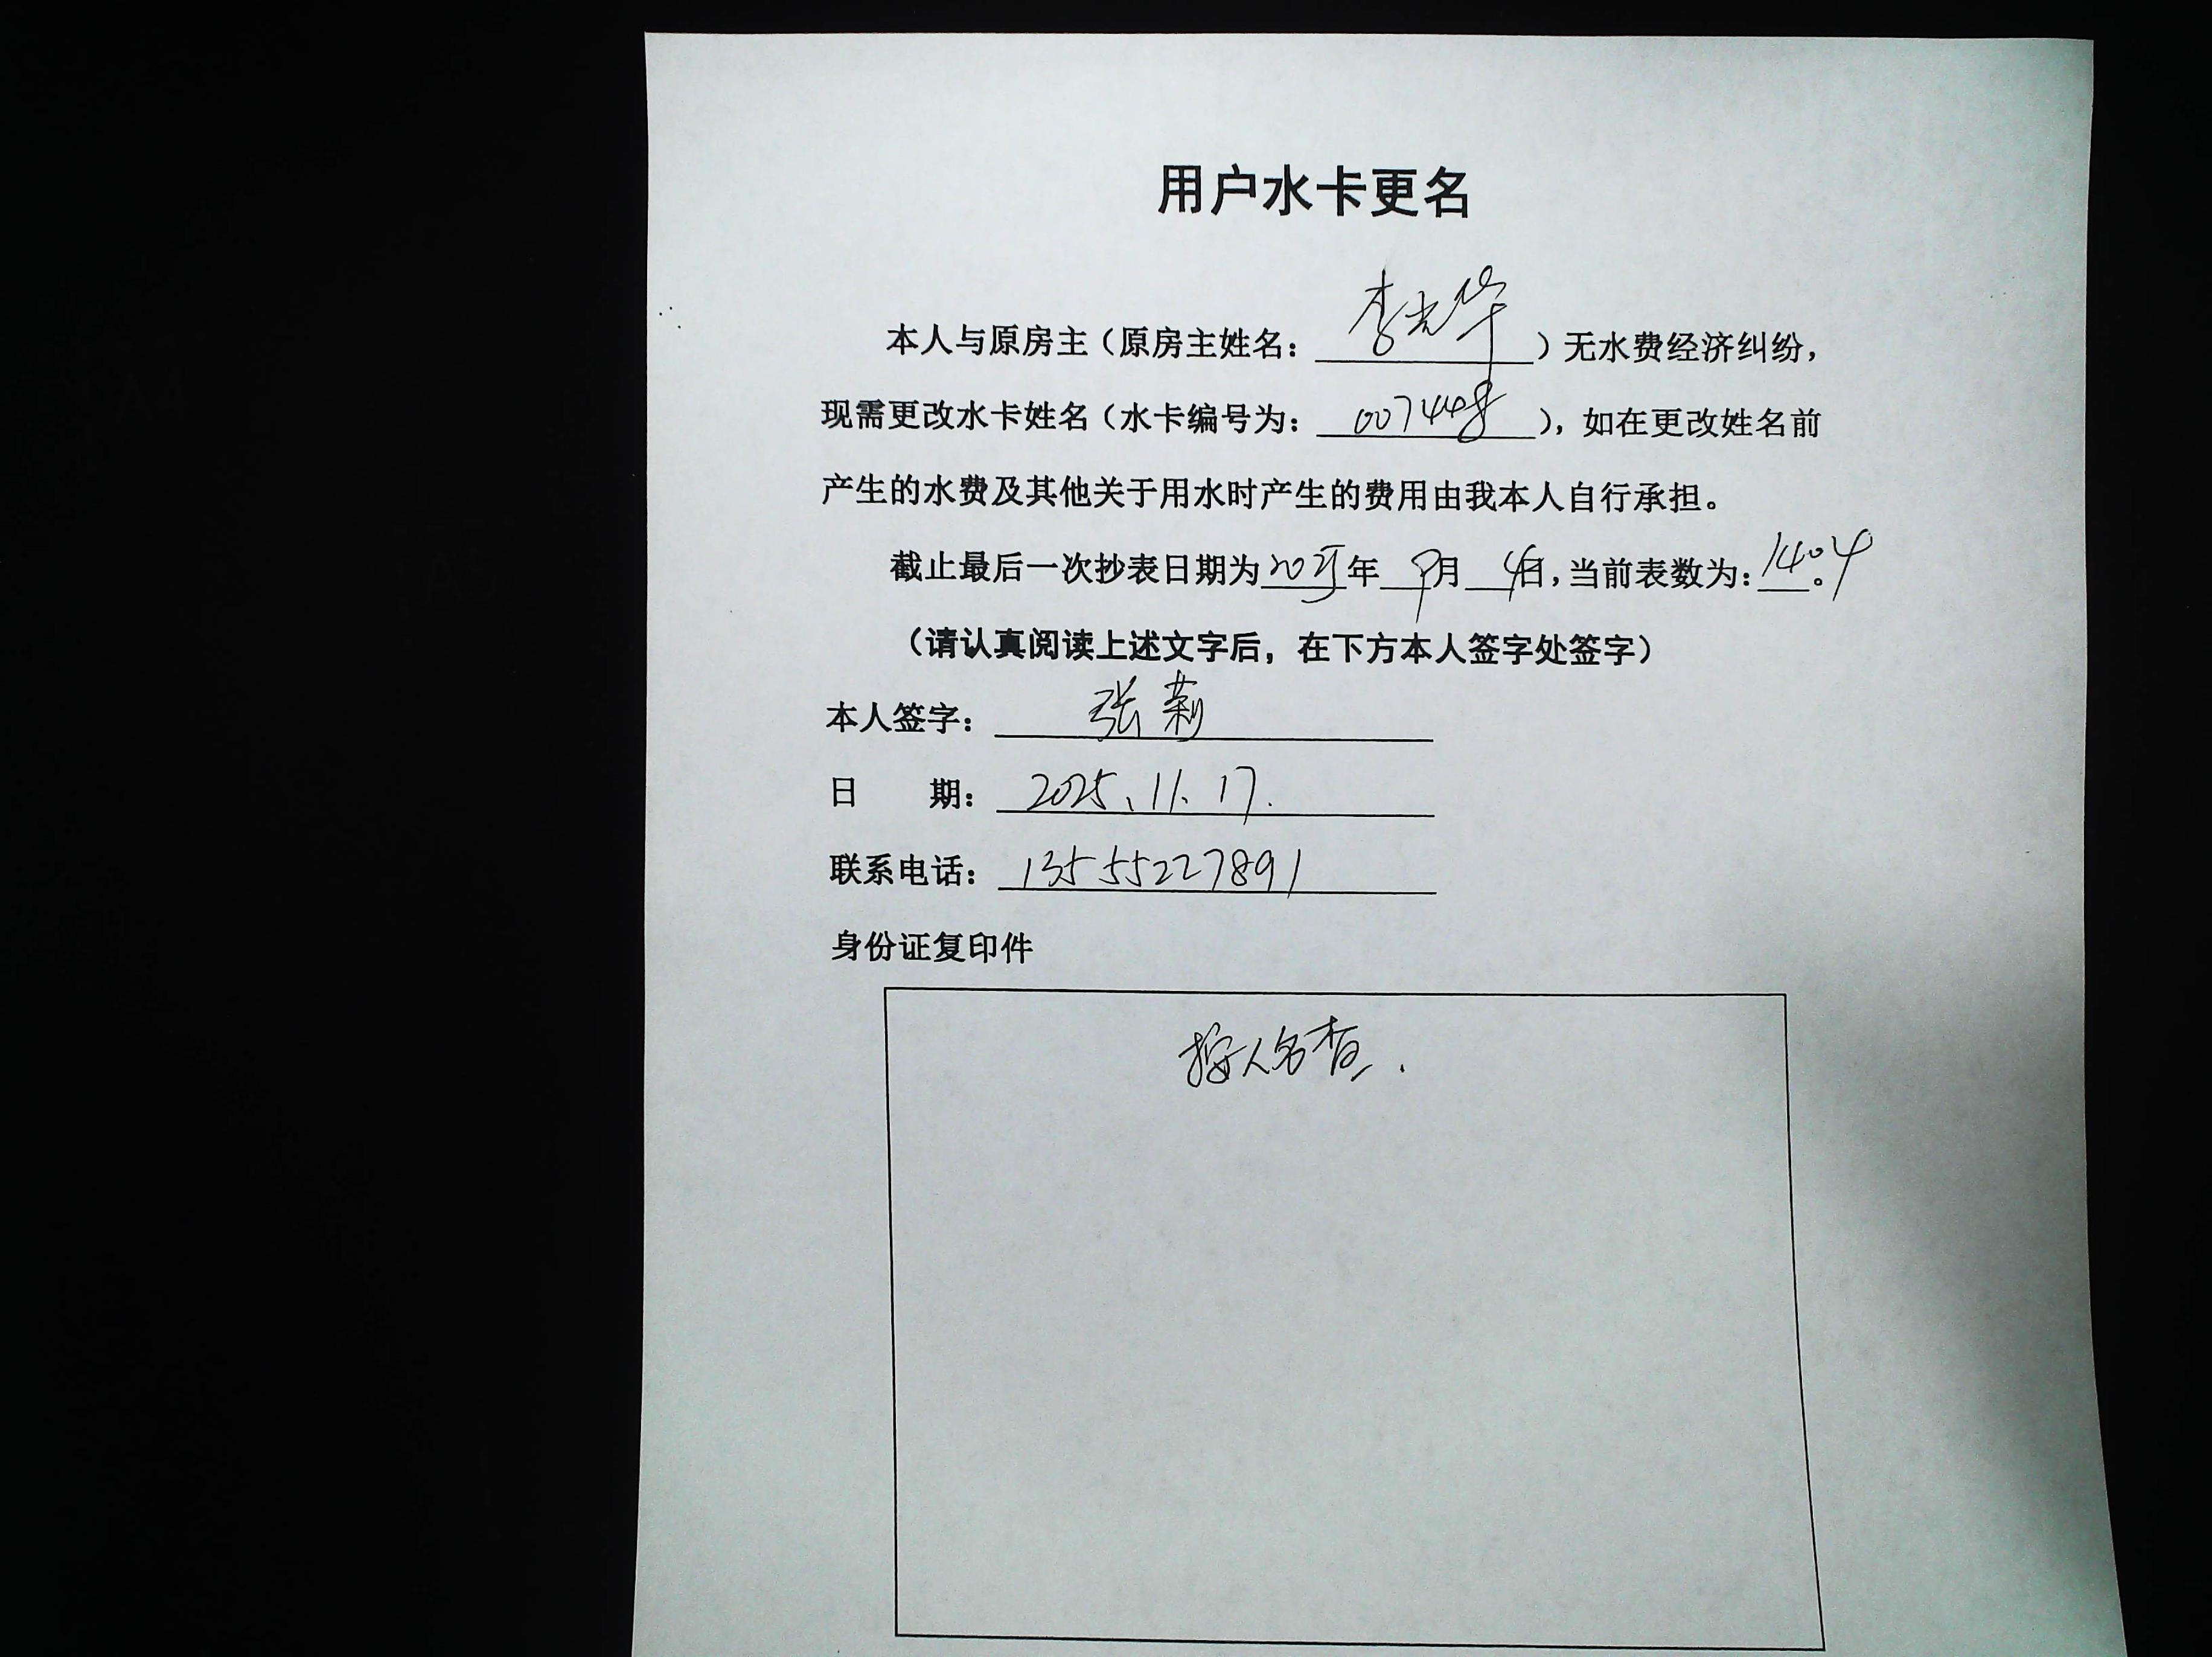 用户水卡更名
本人与原房主（原房主姓名：李光华）无水费经济纠纷，
现需更改水卡姓名（水卡编号为：007448），如在更改姓名前
产生的水费及其他关于用水时产生的费用由我本人自行承担。
截止最后一次抄表日期为2025年9月4日，当前表数为：1404。
（请认真阅读上述文字后，在下方本人签字处签字）
本人签字：张莉
日 期：2025、11、17.
联系电话：13555227891
身份证复印件
按人名查.